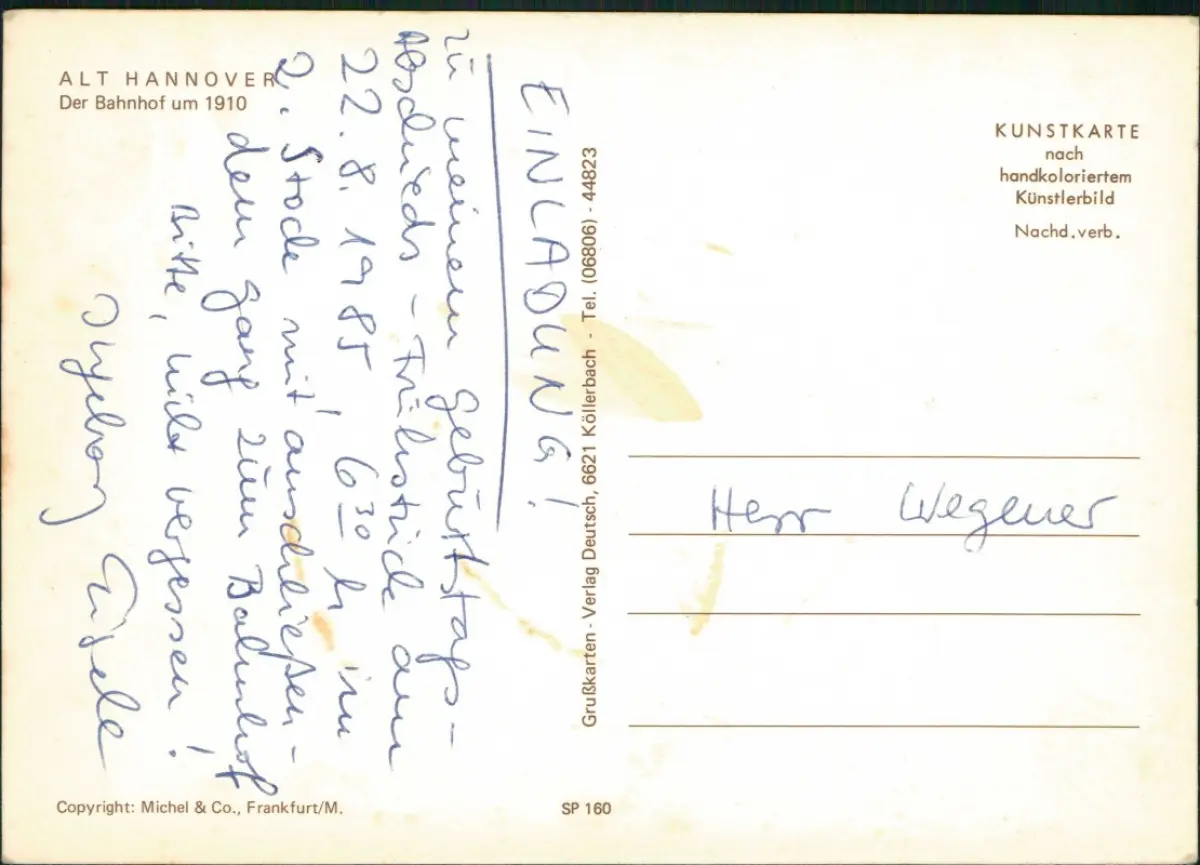 ALT HANNOVER
Der Bahnhof um 1910
EINLADUNG!
zu meinem Geburtstags-
Abschieds-Frühstück am
22.8.1985, 6³⁰ h im
2. Stock mit anschließen-
dem Gang zum Bahnhof
Bitte, nicht vergessen!
Ingeborg Eisele
Grußkarten - Verlag Deutsch, 6621 Köllerbach - Tel. (06806) - 44823
KUNSTKARTE
nach
handkoloriertem
Künstlerbild
Nachd.verb.
Herr Wegener
Copyright: Michel & Co., Frankfurt/M.
SP 160